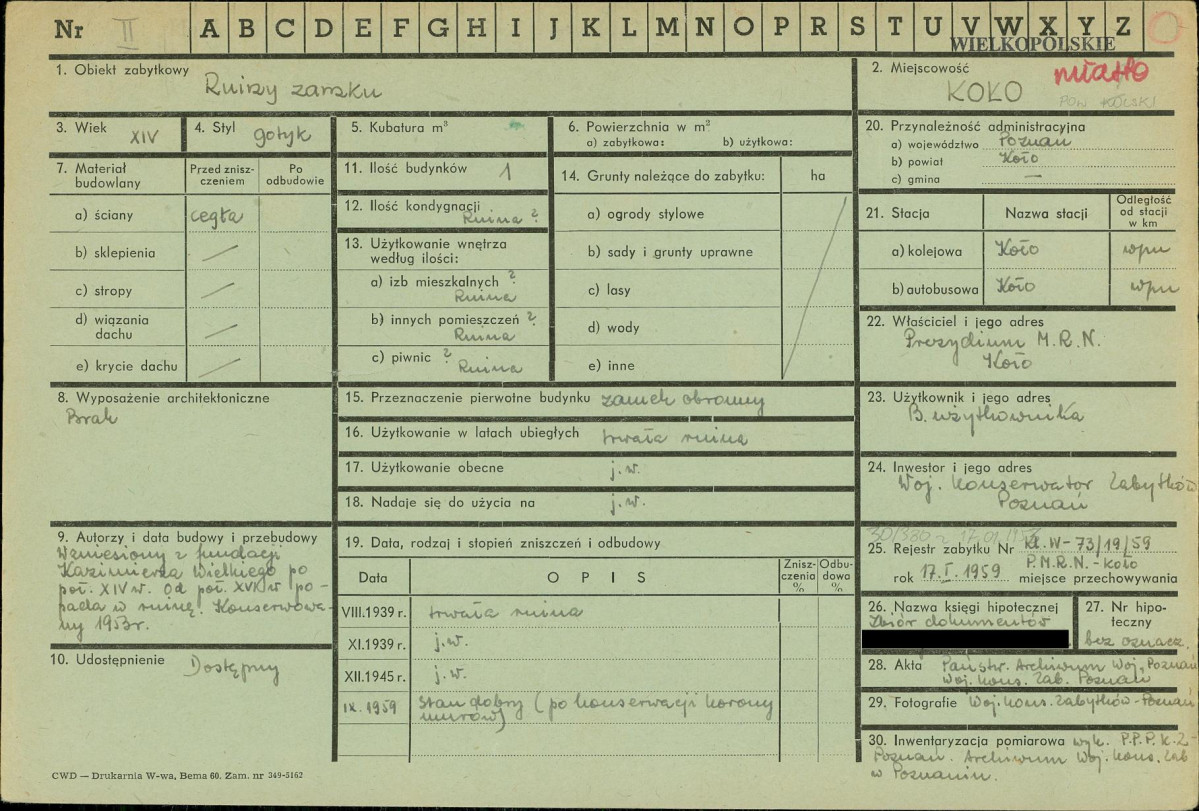 Nr II A B C D E F G H I J K L M N O P R S T U V W X Y Z
WIELKOPOLSKIE
1. Obiekt zabytkowy Ruiny zamku
2. Miejscowość miasto
KOŁO
POW KOLSKI
3. Wiek XIV
4. Styl gotyk
5. Kubatura m³
6. Powierzchnia w m²
a) zabytkowa: b) użytkowa:
7. Materiał budowlany
Przed zniszczeniem
Po odbudowie
a) ściany cegła
b) sklepienia —
c) stropy —
d) wiązania dachu —
e) krycie dachu —
8. Wyposażenie architektoniczne
Brak
9. Autorzy i data budowy i przebudowy
Wzniesiony z fundacji
Kazimierza Wielkiego po
poł. XIV w. Od poł. XVI w po-
pada w ruinę. Konserwowa-
ny 1953 r.
10. Udostępnienie Dostępny
11. Ilość budynków 1
12. Ilość kondygnacji Ruina ?
13. Użytkowanie wnętrza
według ilości:
a) izb mieszkalnych ?
Ruina
b) innych pomieszczeń ?
Ruina
c) piwnic ? Ruina
14. Grunty należące do zabytku: ha
a) ogrody stylowe
b) sady i grunty uprawne
c) lasy
d) wody
e) inne
15. Przeznaczenie pierwotne budynku zamek obronny
16. Użytkowanie w latach ubiegłych trwała ruina
17. Użytkowanie obecne j.w.
18. Nadaje się do użycia na j.w.
19. Data, rodzaj i stopień zniszczeń i odbudowy
Data OPIS Zniszczenia % Odbudowa %
VIII.1939 r. trwała ruina
XI.1939 r. j.w.
XII.1945 r. j.w.
IX.1959 Stan dobry (po konserwacji korony
murów)
20. Przynależność administracyjna
a) województwo Poznań
b) powiat Koło
c) gmina —
21. Stacja Nazwa stacji Odległość od stacji w km
a) kolejowa Koło
b) autobusowa Koło
22. Właściciel i jego adres
Prezydium M.R.N.
Koło
23. Użytkownik i jego adres
B. użytkownika
24. Inwestor i jego adres
Woj. Konserwator Zabytków
Poznań
25. Rejestr zabytku Nr Kl.IV-73/19/59
P.M.R.N. - Koło
rok 17.I.1959 miejsce przechowywania
26. Nazwa księgi hipotecznej
Zbiór dokumentów
27. Nr hipoteczny
bez oznacz.
28. Akta Państw. Archiwum Woj. Poznań
Woj. Kons. Zab. Poznań
29. Fotografie Woj. Kons. Zabytków - Poznań
30. Inwentaryzacja pomiarowa wyk. P.P.P.K.Z-
Poznań. Archiwum Woj. Kons. Zab
w Poznaniu.
CWD — Drukarnia W-wa, Bema 60. Zam. nr 349-5162